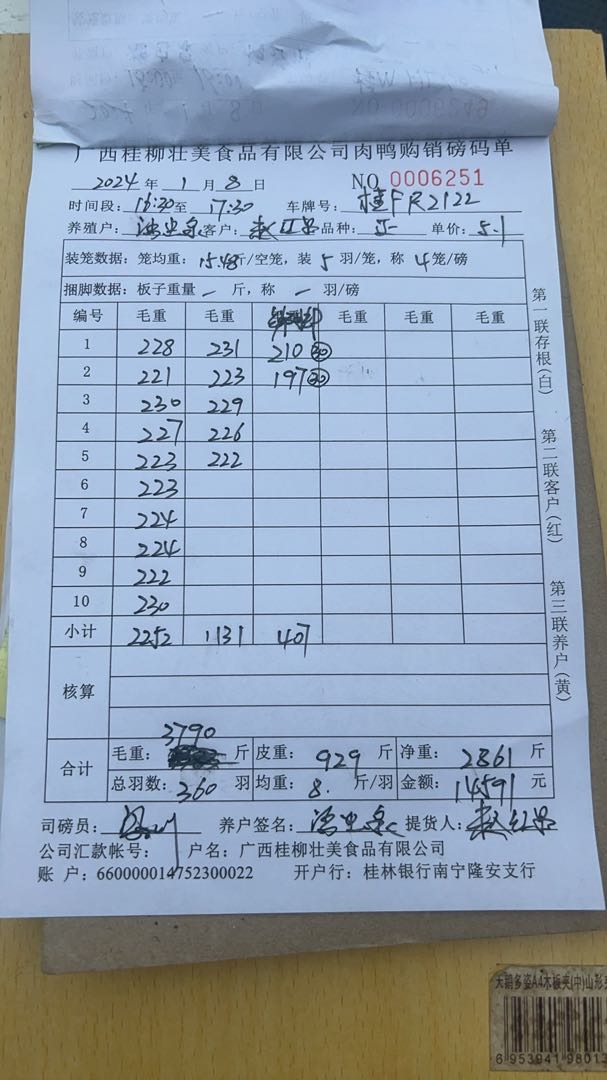 NO 0006249
广西桂柳壮美食品有限公司肉鸭购销磅码单
2024年1月8日 NO 0006251
时间段：16:30至17:30 车牌号：桂FR2122
养殖户： 客户： 红 品种： 单价：5.1
装笼数据：笼均重：15.48斤/空笼，装5羽/笼，称4笼/磅
捆脚数据：板子重量 — 斤，称 — 羽/磅
编号 毛重 毛重 毛重 毛重 毛重
1 228 231 210 30
2 221 223 197 30
3 230 229
4 227 226
5 223 222
6 223
7 224
8 224
9 222
10 230
小计 2252 1131 407
核算
3790
合计 毛重： 斤 皮重：929斤 净重：2861斤
总羽数：360羽 均重：8.斤/羽 金额：14591元
司磅员： 养户签名： 提货人： 红
公司汇款帐号： 户名：广西桂柳壮美食品有限公司
账 户：660000014752300022 开户行：桂林银行南宁隆安支行
第一联存根(白)
第二联客户(红)
第三联养户(黄)
天鹅多姿A4木板夹(中)山形
6 953941 98013